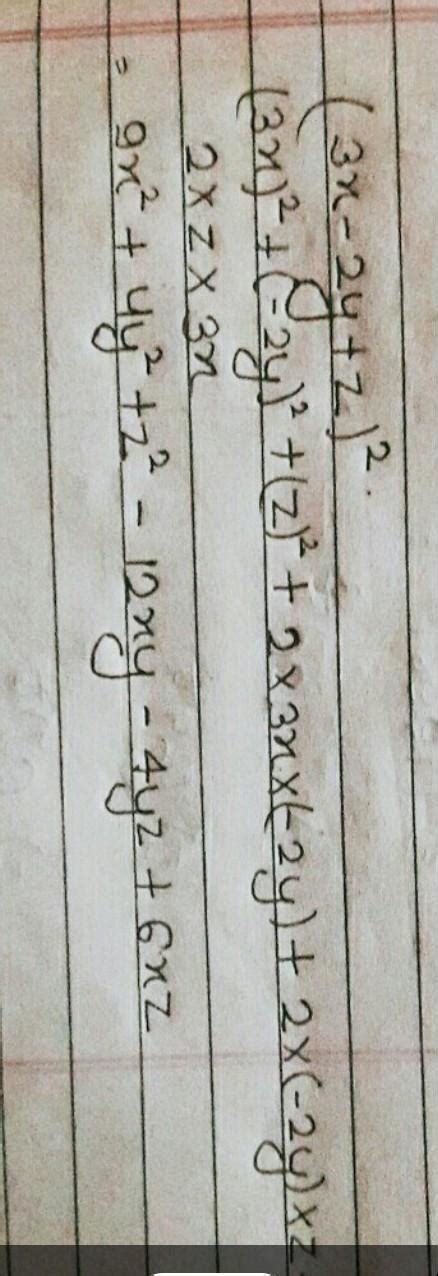 (3x-2y+z)².
(3x)²+(-2y)²+(z)²+2×3x×(-2y)+2×(-2y)×z
2×z×3x
= 9x²+4y²+z²-12xy-4yz+6xz